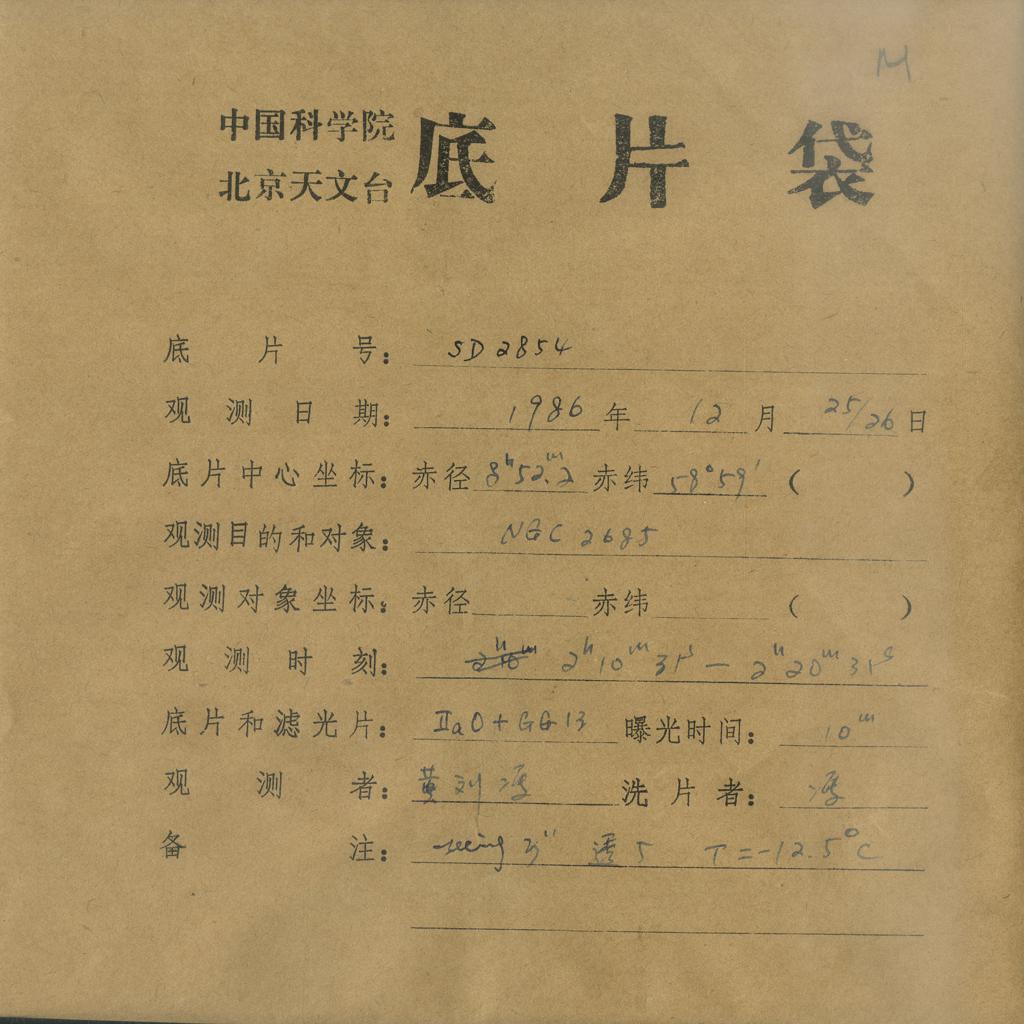 M
中国科学院
北京天文台
底片袋
底片号: SD2854
观测日期: 1986年12月25/26日
底片中心坐标: 赤径 8h52m.2 赤纬 58°59′ ( )
观测目的和对象: NGC 2685
观测对象坐标: 赤径 赤纬 ( )
观测时刻: 2h10m 2h10m31s — 2h20m31s
底片和滤光片: IIaO+GG13 曝光时间: 10m
观测者: 黄刘 洗片者:
备注: seeing 3″ 透5 T=-12.5°C